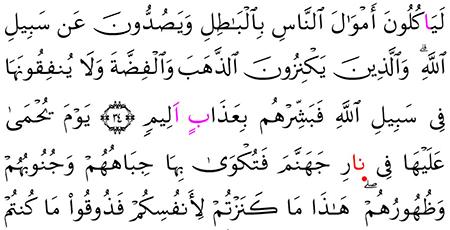 لَيَاكُلُونَ أَمْوَٰلَ ٱلنَّاسِ بِٱلْبَٰطِلِ وَيَصُدُّونَ عَن سَبِيلِ
ٱللَّهِۗ وَٱلَّذِينَ يَكْنِزُونَ ٱلذَّهَبَ وَٱلْفِضَّةَ وَلَا يُنفِقُونَهَا
فِى سَبِيلِ ٱللَّهِ فَبَشِّرْهُم بِعَذَابٍ اَلِيمٍ ٣٤ يَوْمَ يُحْمَىٰ
عَلَيْهَا فِى نِارِ جَهَنَّمَ فَتُكْوَىٰ بِهَا جِبَاهُهُمْ وَجُنُوبُهُمْ
وَظُهُورُهُمْۖ هَٰذَا مَا كَنَزْتُمْ لِأَنفُسِكُمْ فَذُوقُوا۟ مَا كُنتُمْ